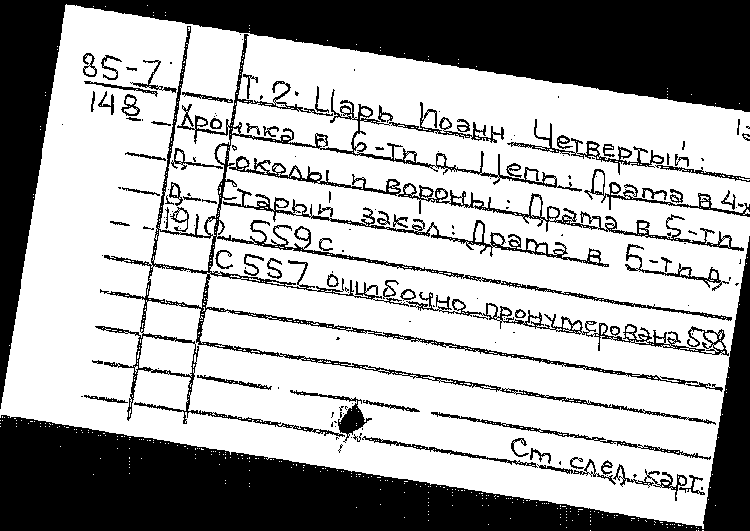 85-7
148
Т.2: Царь Иоанн Четвертый:
Хроника в 6-ти д. Цепи: Драма в 4-х
д. Соколы и вороны: Драма в 5-ти
д. Старый закал: Драма в 5-ти д.
1910. 559 с.
С 557 ошибочно пронумерована 558
См. след. карт.